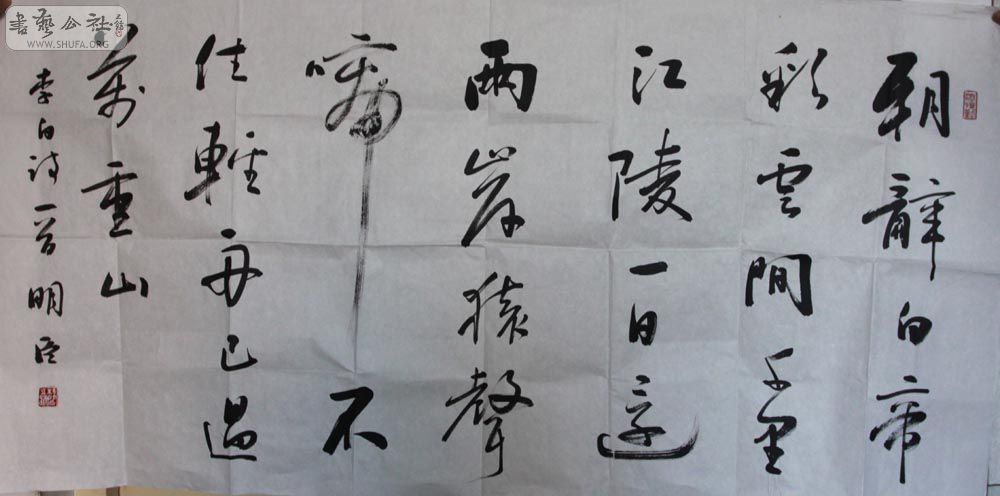 朝辭白帝
彩雲間千里
江陵一日還
兩岸猿聲
啼不
住輕舟已過
萬重山
李白詩一首 明
書藝公社
WWW.SHUFA.ORG